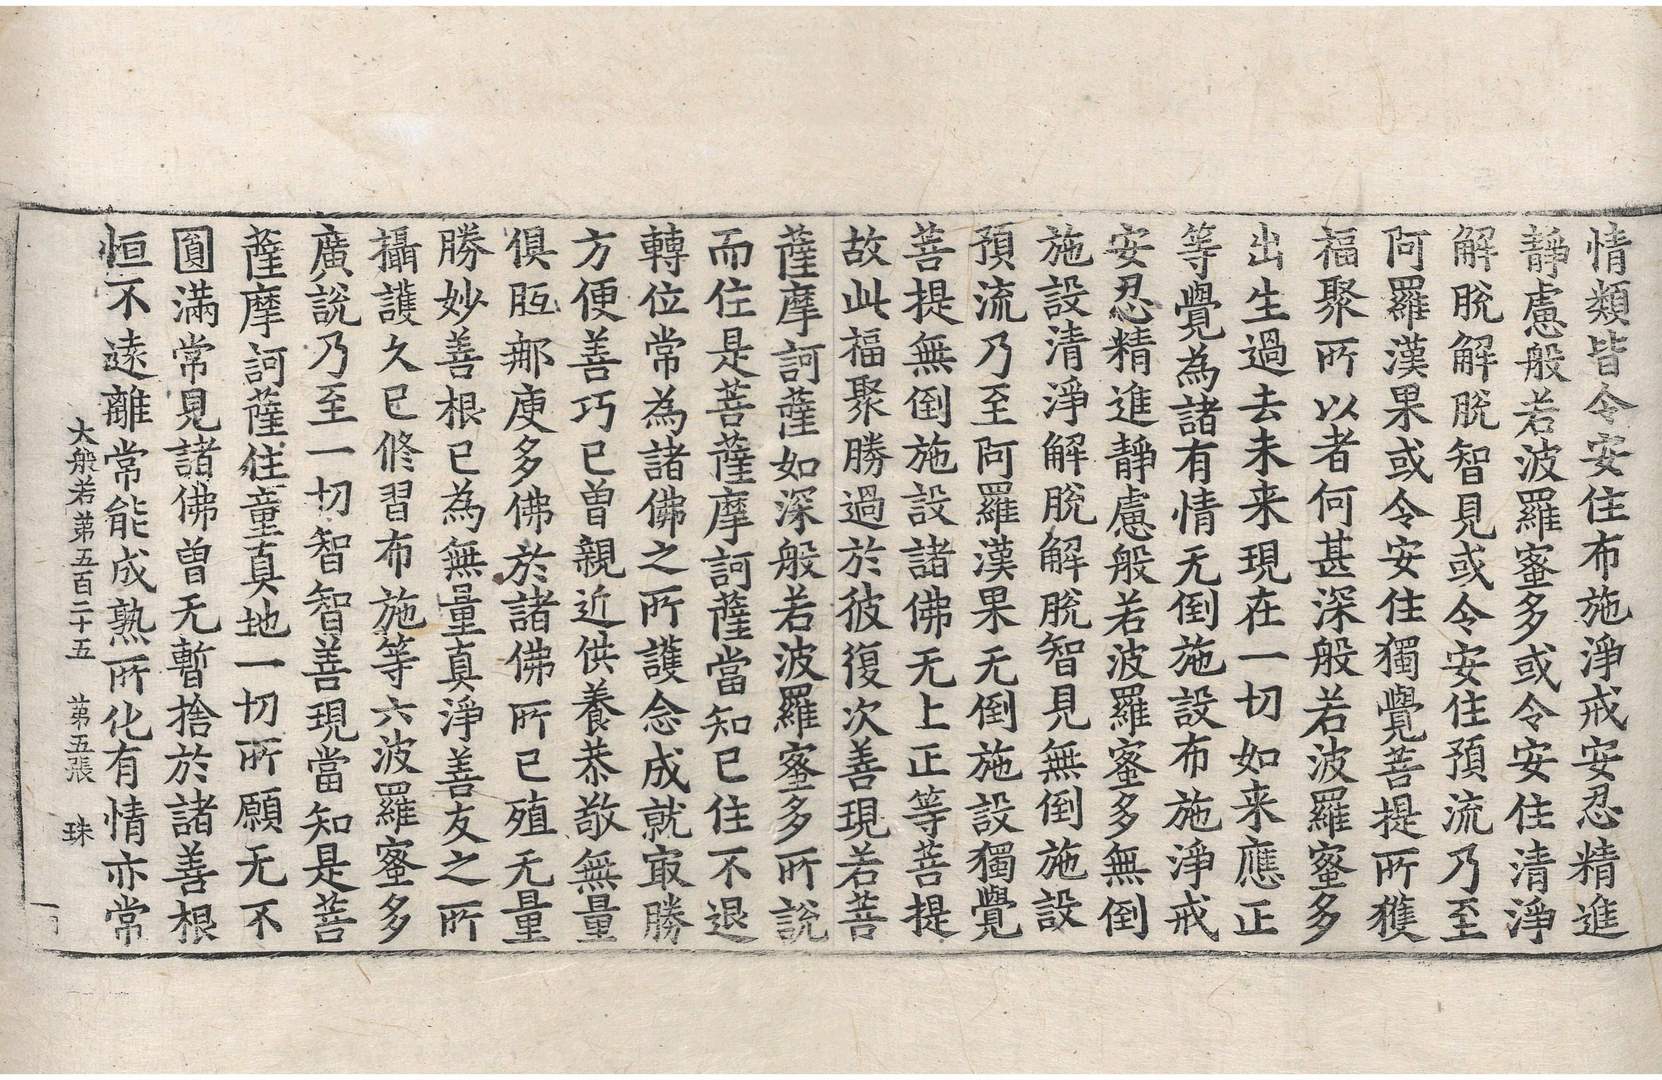 情類皆令安住布施淨戒安忍精進
靜慮般若波羅蜜多或令安住清淨
解脫解脫智見或令安住預流乃至
阿羅漢果或令安住獨覺菩提所獲
福聚所以者何甚深般若波羅蜜多
出生過去未来現在一切如来應正
等覺為諸有情无倒施設布施淨戒
安忍精進靜慮般若波羅蜜多無倒
施設清淨解脫解脫智見無倒施設
預流乃至阿羅漢果无倒施設獨覺
菩提無倒施設諸佛无上正等菩提
故此福聚勝過於彼復次善現若菩
薩摩訶薩如深般若波羅蜜多所說
而住是菩薩摩訶薩當知已住不退
轉位常為諸佛之所護念成就㝡勝
方便善巧已曽親近供養恭敬無量
俱胝那庾多佛於諸佛所已殖无量
勝妙善根已為無量真淨善友之所
攝護久已修習布施等六波羅蜜多
廣說乃至一切智智善現當知是菩
薩摩訶薩住童真地一切所願无不
圓滿常見諸佛曽无暫捨於諸善根
恒不遠離常能成熟所化有情亦常
大般若第五百二十五 第五張 珠